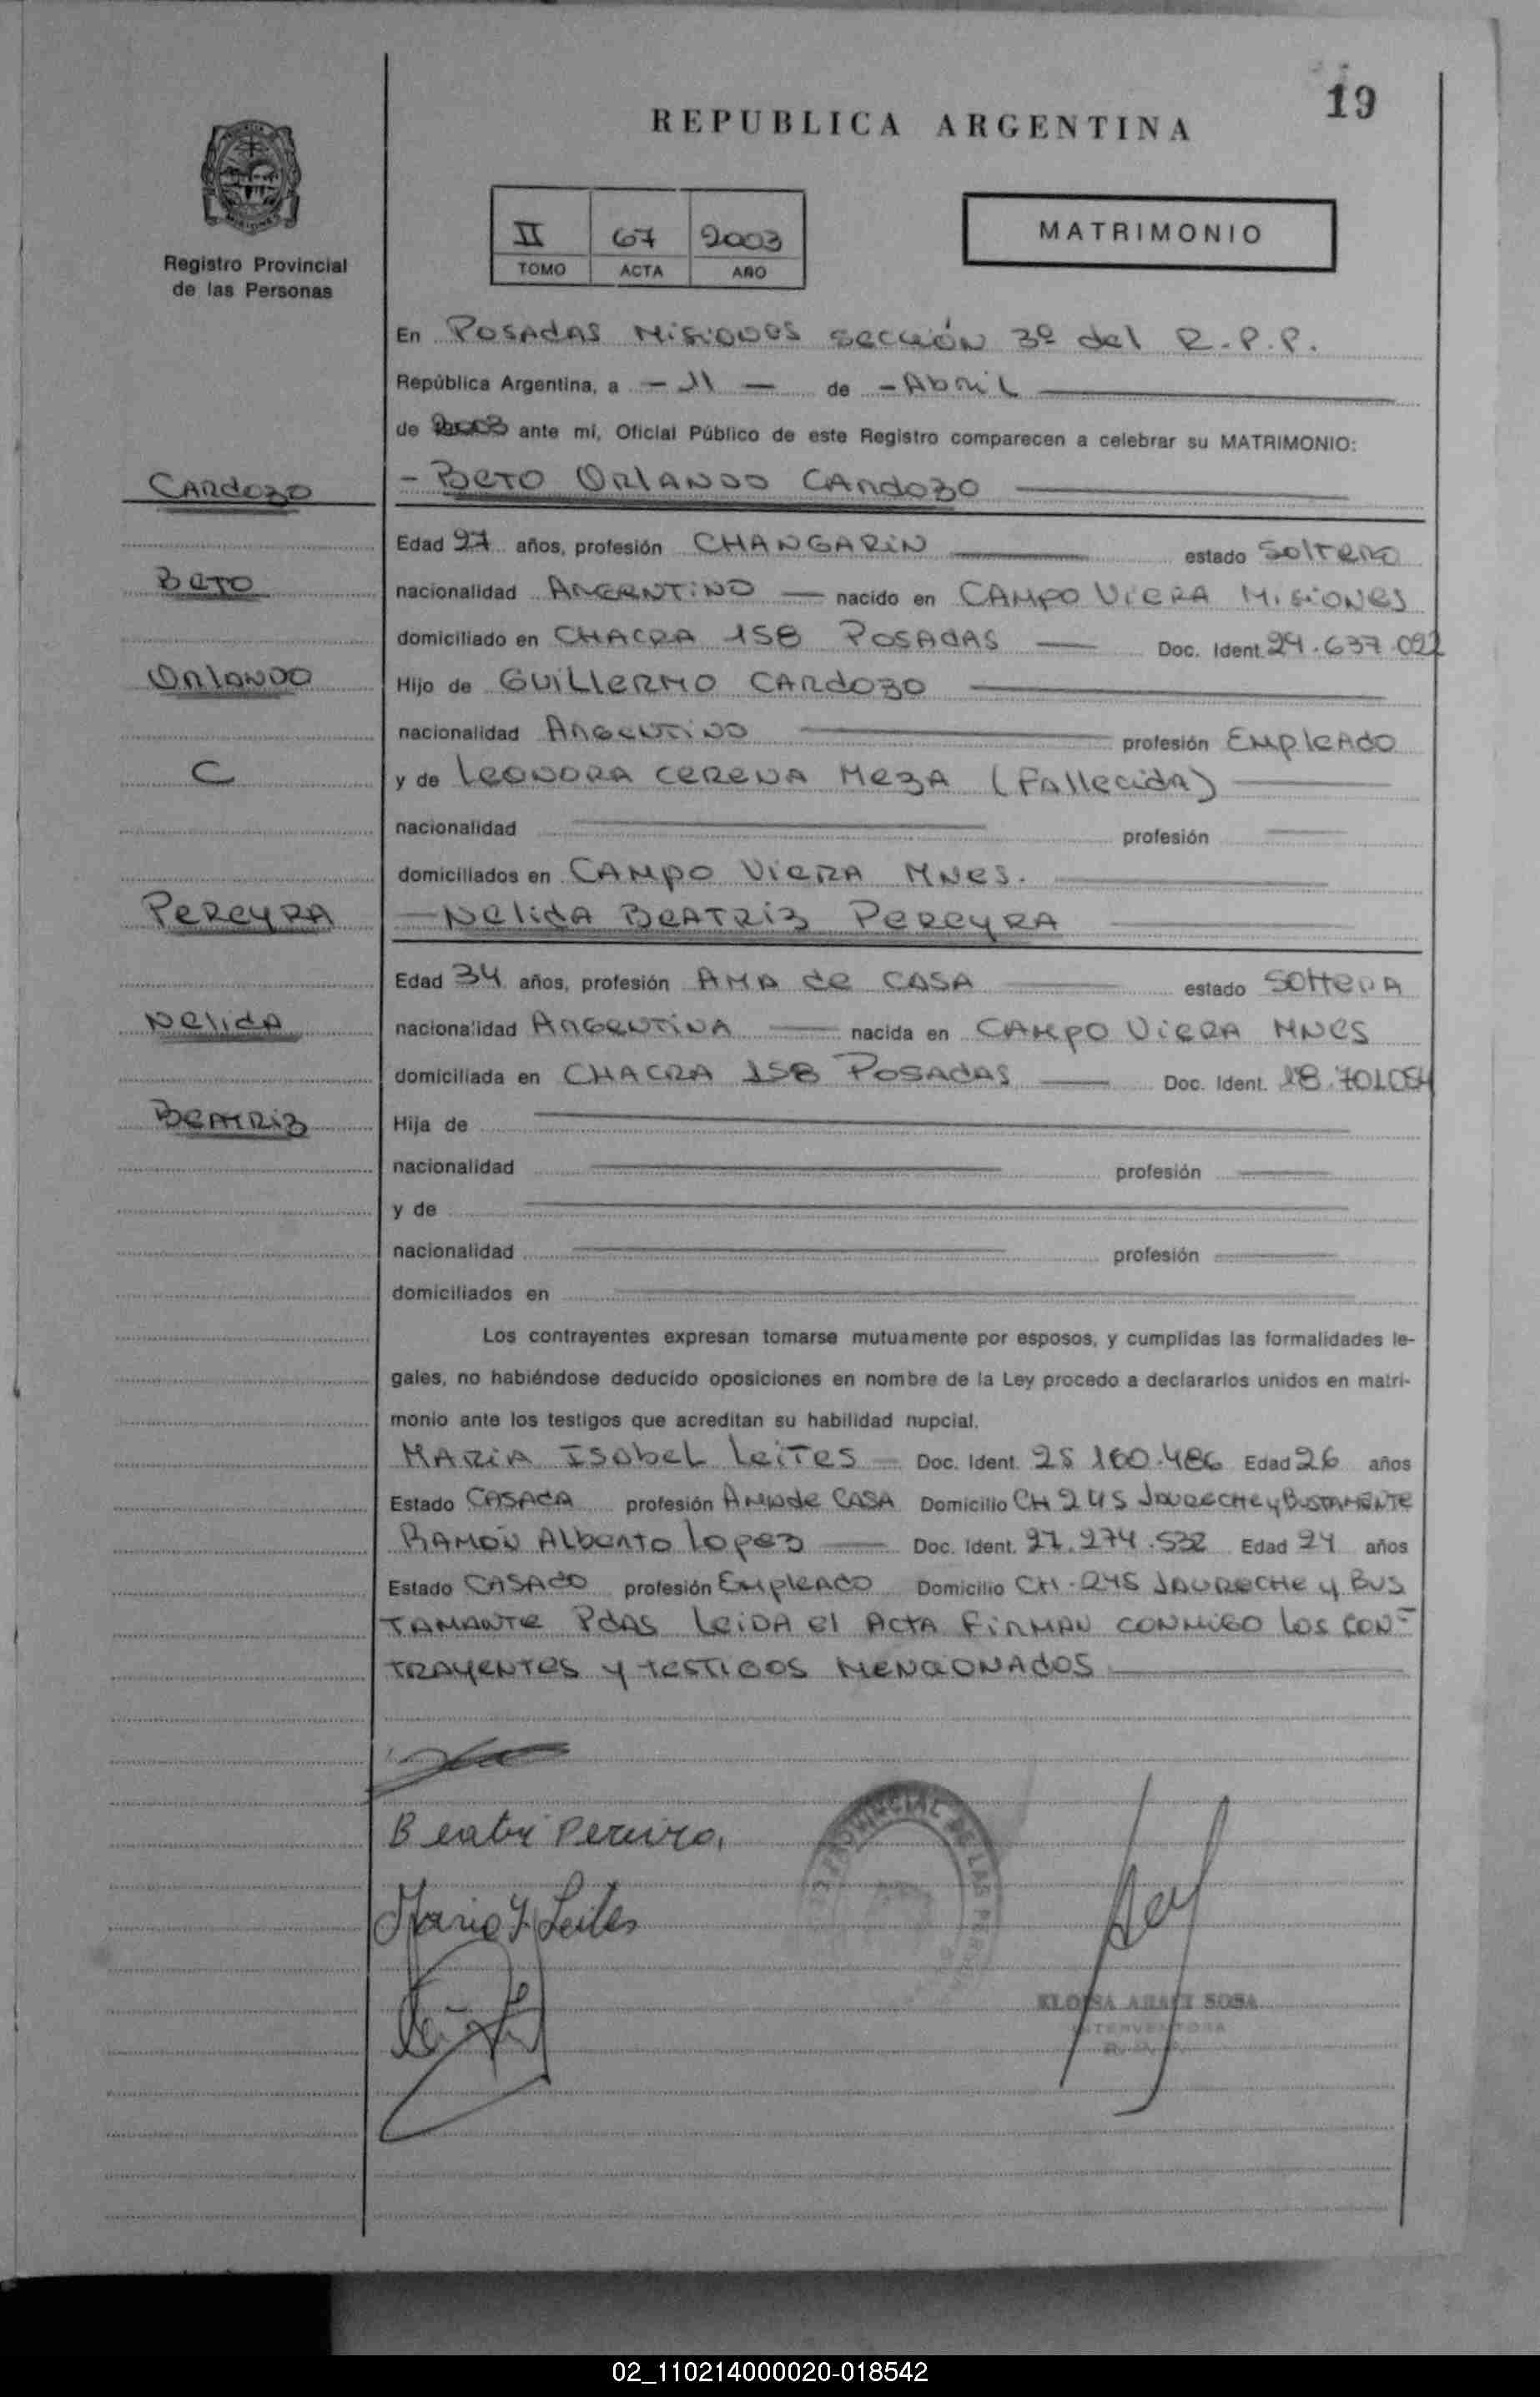 19
REPUBLICA ARGENTINA
II 67 2003
TOMO ACTA AÑO
MATRIMONIO
Registro Provincial
de las Personas
En POSADAS MISIONES SECCIÓN 3º del R.P.P.
República Argentina, a - 11 - de - Abril
de 2003 ante mí, Oficial Público de este Registro comparecen a celebrar su MATRIMONIO:
CARDOZO
- BETO ORLANDO CARDOZO
Edad 27 años, profesión CHANGARIN estado SOLTERO
BETO
nacionalidad ARGENTINO — nacido en CAMPO VIERA MISIONES
domiciliado en CHACRA 158 POSADAS — Doc. Ident. 24.637.092
ORLANDO
Hijo de GUILLERMO CARDOZO
nacionalidad ARGENTINO profesión EMPLEADO
C
y de LEONORA CERENA MEZA (FALLECIDA)
nacionalidad profesión
domiciliados en CAMPO VIERA MNES.
PEREYRA
- NELIDA BEATRIZ PEREYRA
Edad 34 años, profesión AMA de CASA estado SOLTERA
NELIDA
nacionalidad ARGENTINA — nacida en CAMPO VIERA MNES
domiciliada en CHACRA 158 POSADAS — Doc. Ident. 18.701.054
BEATRIZ
Hija de
nacionalidad profesión
y de
nacionalidad profesión
domiciliados en
Los contrayentes expresan tomarse mutuamente por esposos, y cumplidas las formalidades le-
gales, no habiéndose deducido oposiciones en nombre de la Ley procedo a declararlos unidos en matri-
monio ante los testigos que acreditan su habilidad nupcial.
MARIA ISABEL LEITES — Doc. Ident. 25 160.486 Edad 26 años
Estado CASADA profesión AMA de CASA Domicilio CH 245 JAURECHE y BUSTAMENTE
RAMON ALBERTO LOPEZ — Doc. Ident. 27.274.532 Edad 24 años
Estado CASADO profesión EMPLEADO Domicilio CH-245 JAURECHE y BUS
TAMANTE PDAS LEIDA el ACTA FIRMAN CONMIGO los CON-
TRAYENTES y TESTIGOS MENCIONADOS
Beatri Pereira
Maria Y. Leites
PROVINCIAL DE LAS PER
ELOISA ARACI SOSA
INTERVENTORA
02_110214000020-018542